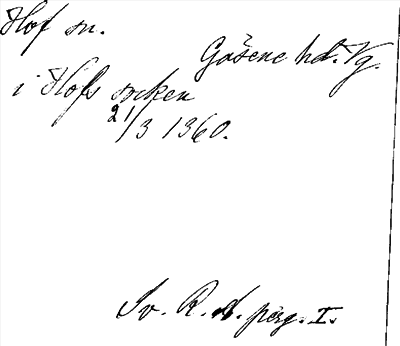 Hof sn.
Gäsene hd. Vg.
i Hofs socken
21/3 1360.
Sv. R. A. perg. I.